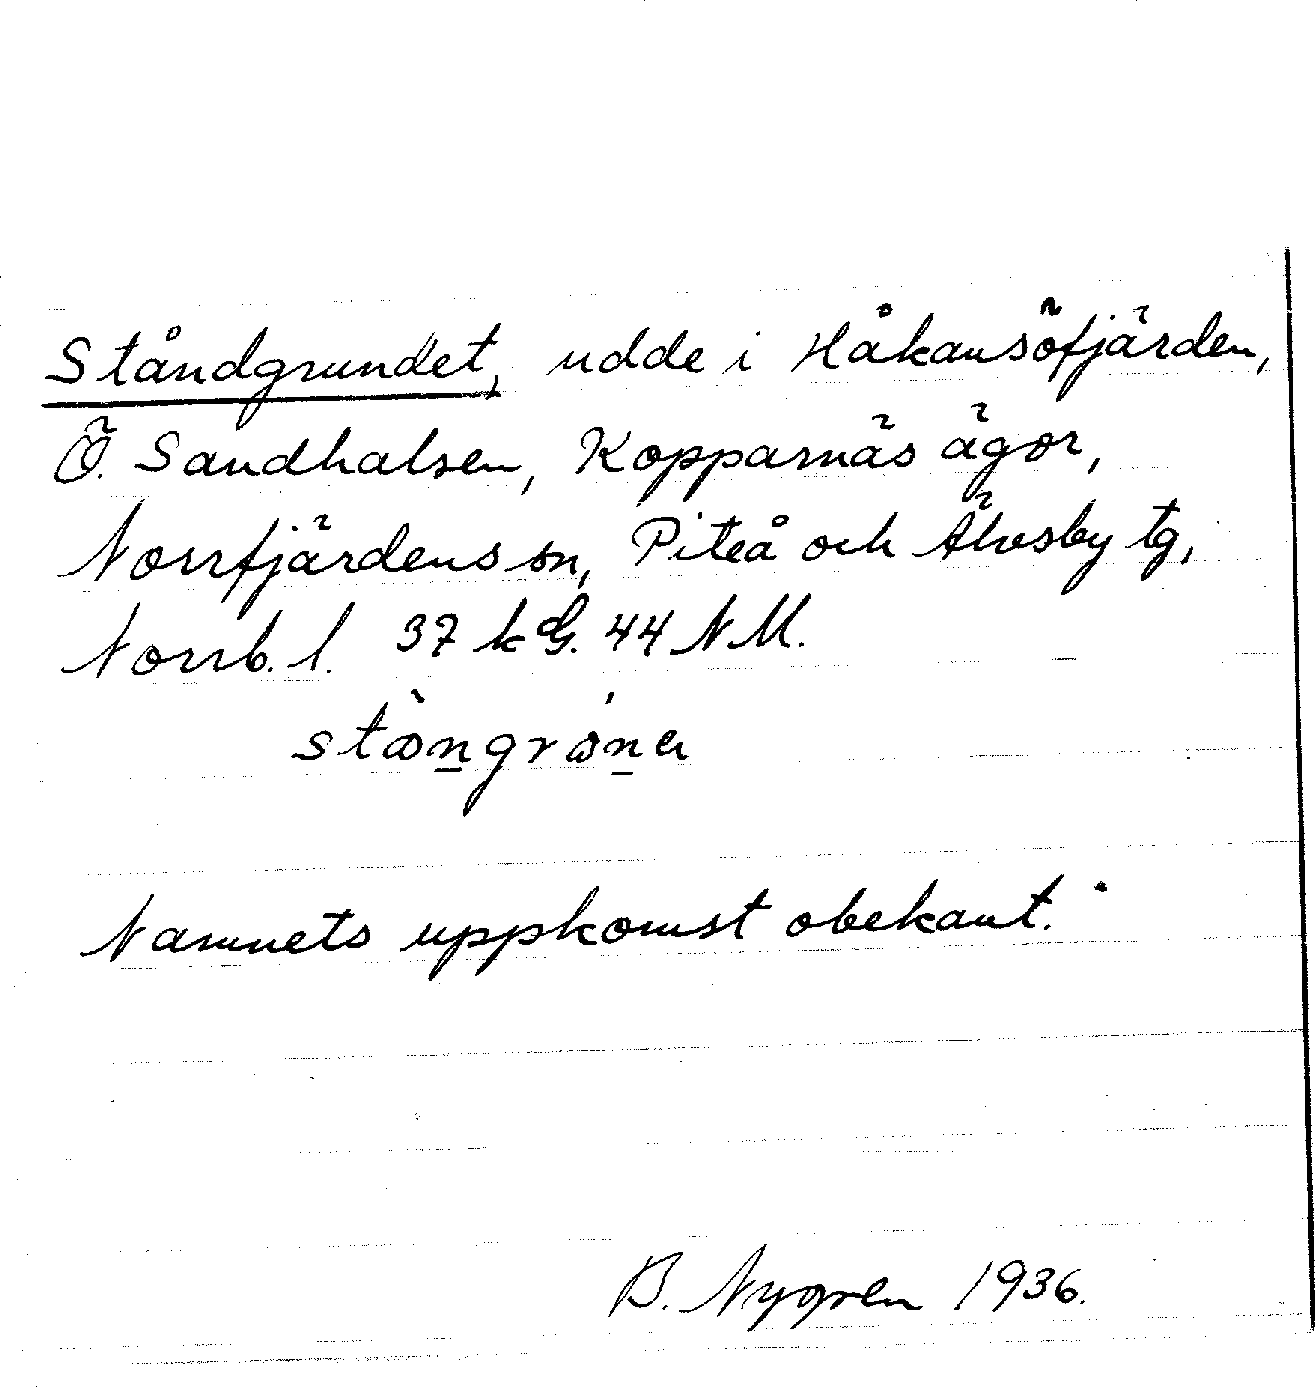 Ståndgrundet, udde i Håkansöfjärden,
Ö. Sandhalsen, Kopparnäs ägor,
Norrfjärdens sn, Piteå och Älvsby tg,
Norrb. l. 37 k G. 44 N M.
Namnets uppkomst obekant.
B. Nygren 1936.